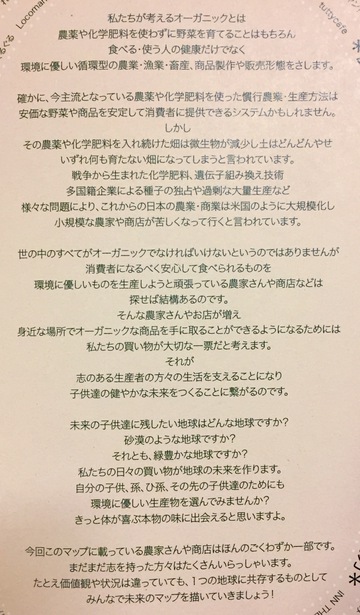 私たちが考えるオーガニックとは
農薬や化学肥料を使わずに野菜を育てることはもちろん
食べる・使う人の健康だけでなく
環境に優しい循環型の農業・漁業・畜産、商品製作や販売形態をさします。
確かに、今主流となっている農薬や化学肥料を使った慣行農業・生産方法は
安価な野菜や商品を安定して消費者に提供できるシステムかもしれません。
しかし
その農薬や化学肥料を入れ続けた畑は微生物が減少し土はどんどんやせ
いずれ何も育たない畑になってしまうと言われています。
戦争から生まれた化学肥料、遺伝子組み換え技術
多国籍企業による種子の独占や過剰な大量生産など
様々な問題により、これからの日本の農業・商業は米国のように大規模化し
小規模な農家や商店が苦しくなって行くと言われています。
世の中のすべてがオーガニックでなければいけないというのではありませんが
消費者になるべく安心して食べられるものを
環境に優しいものを生産しようと頑張っている農家さんや商店などは
探せば結構あるのです。
そんな農家さんやお店が増え
身近な場所でオーガニックな商品を手に取ることができるようになるためには
私たちの買い物が大切な一票だと考えます。
それが
志のある生産者の方々の生活を支えることになり
子供達の健やかな未来をつくることに繋がるのです。
未来の子供達に残したい地球はどんな地球ですか?
砂漠のような地球ですか?
それとも、緑豊かな地球ですか?
私たちの日々の買い物が地球の未来を作ります。
自分の子供、孫、ひ孫、その先の子供達のためにも
環境に優しい生産物を選んでみませんか?
きっと体が喜ぶ本物の味に出会えると思いますよ。
今回このマップに載っている農家さんや商店はほんのごくわずか一部です。
まだまだ志を持った方々はたくさんいらっしゃいます。
たとえ価値観や状況は違っていても、1つの地球に共存するものとして
みんなで未来のマップを描いていきましょう!
tuttycafe